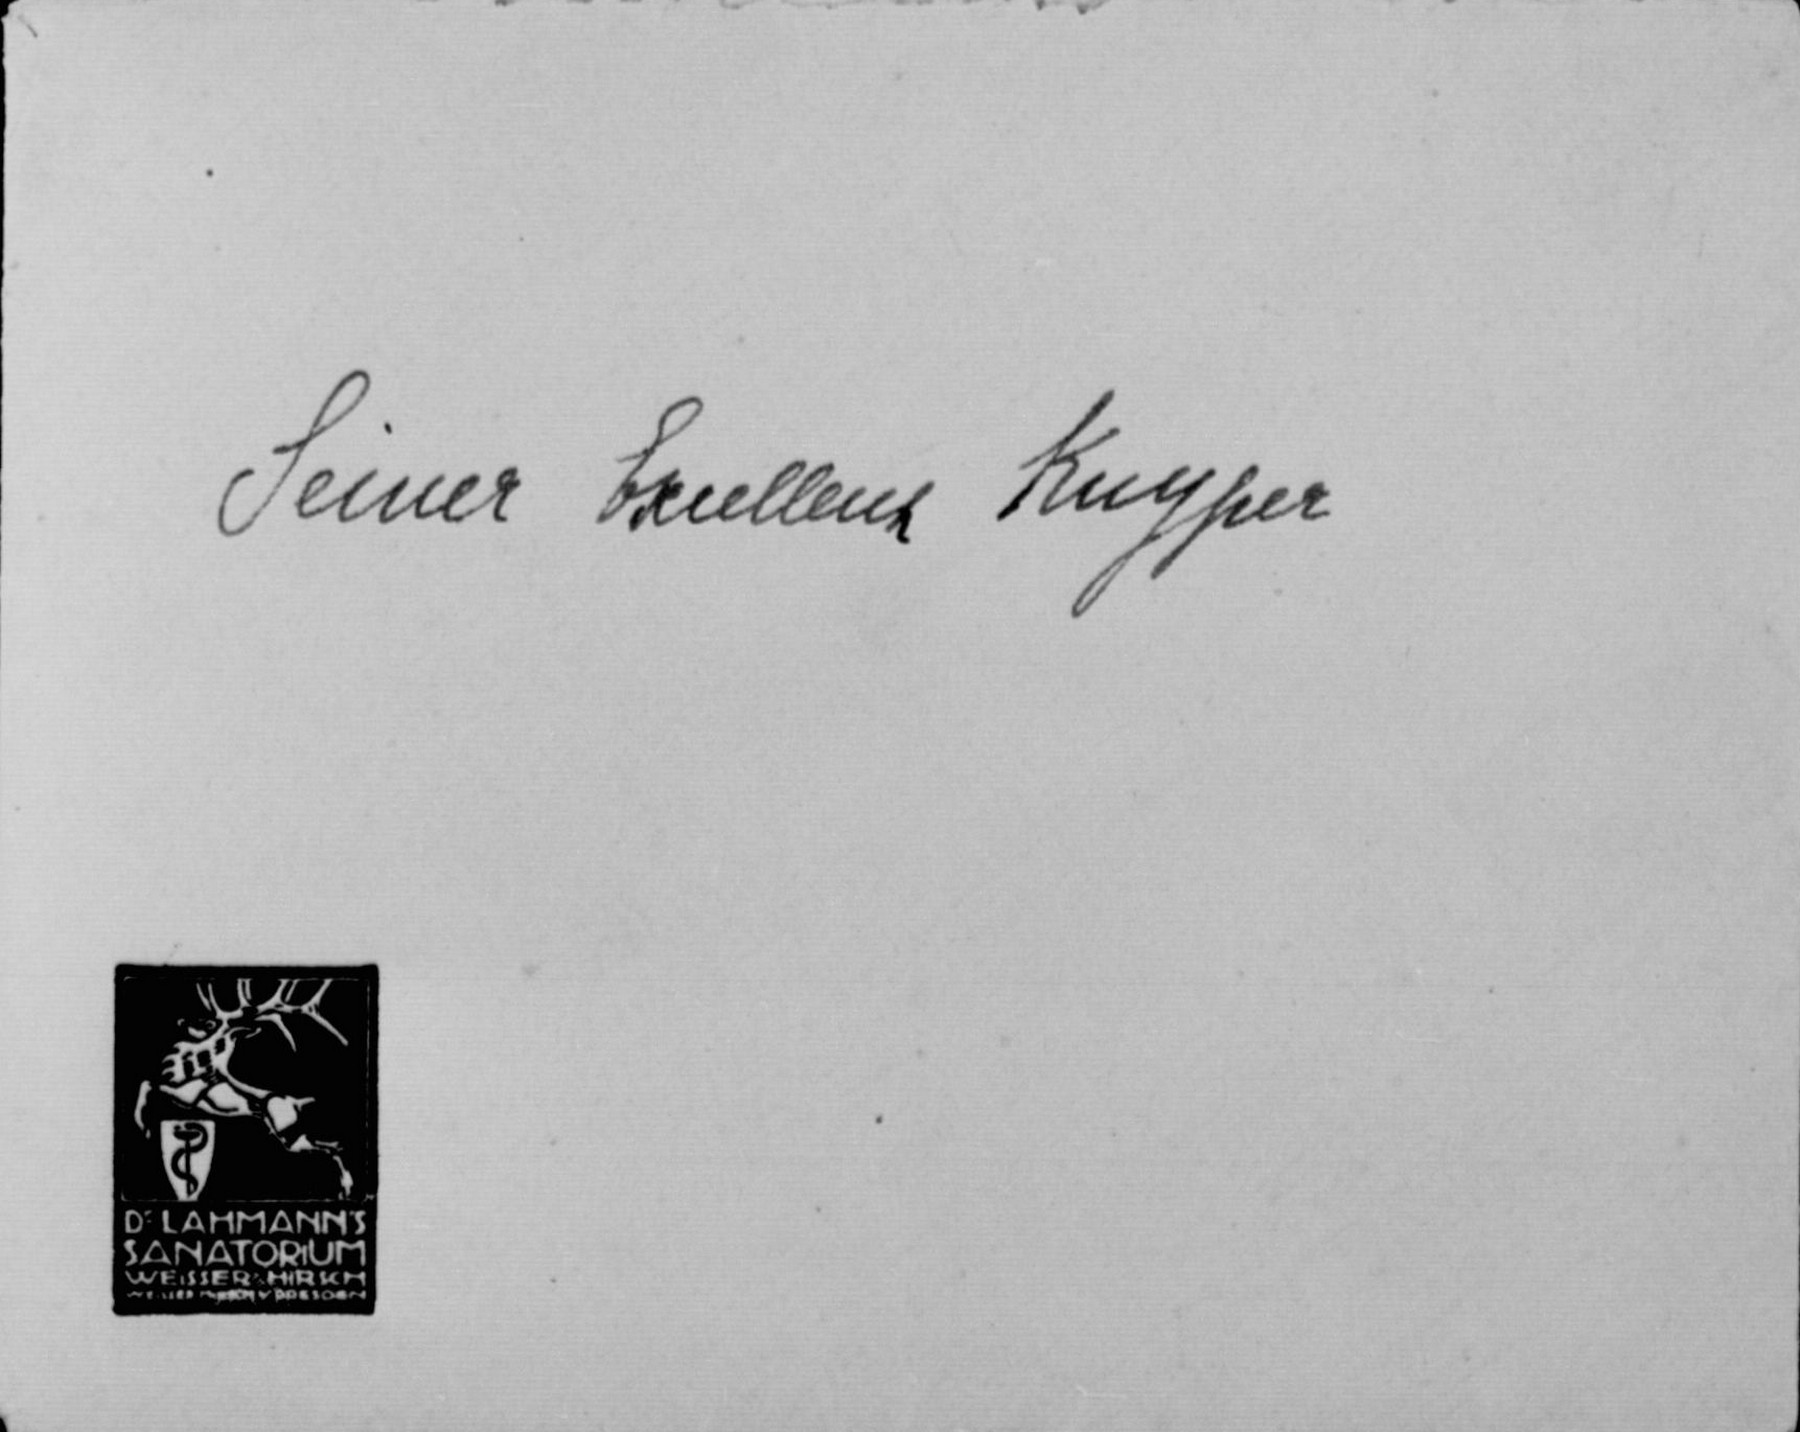 Seiner Excellenz Kuyper
Dr LAHMANN'S
SANATORIUM
WEISSER HIRSCH
DRESDEN